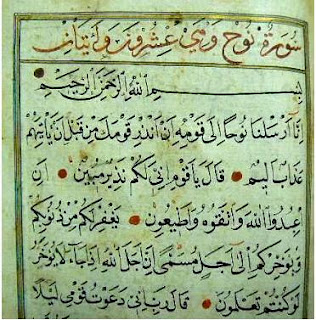 سورة نوح وهي عشرون وثمانيات
بسم الله الرحمن الرحيم
انا ارسلنا نوحا الى قومه ان انذر قومك من قبل ان ياتيهم
عذاب اليم قال ياقوم اني لكم نذير مبين ان
اعبدوا الله واتقوه واطيعون يغفر لكم من ذنوبكم
ويؤخركم الى اجل مسمى ان اجل الله اذا جاء لا يؤخر
لو كنتم تعلمون قال رب اني دعوت قومي ليلا